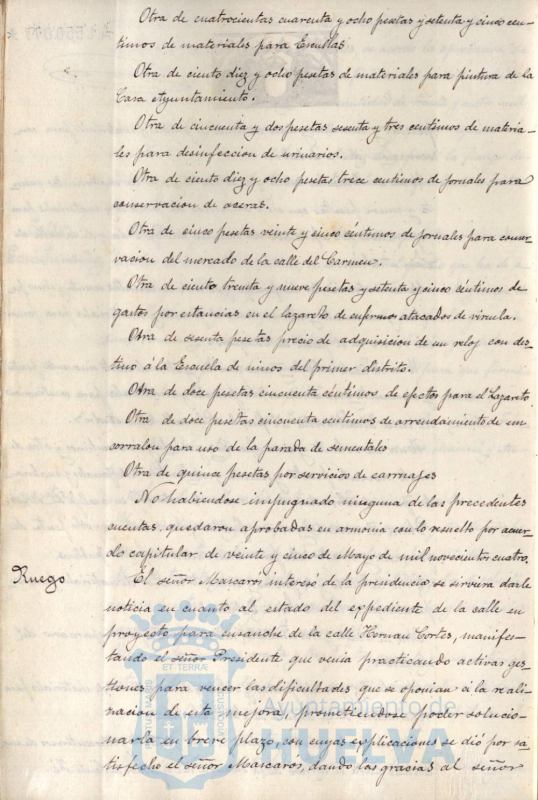 Otra de cuatrocientas cuarenta y ocho pesetas y setenta y cinco cen-
timos de materiales para Escuelas.
Otra de ciento diez y ocho pesetas de materiales para pintura de la
Casa Ayuntamiento.
Otra de cincuenta y dos pesetas sesenta y tres centimos de materia-
les para desinfeccion de urinarios.
Otra de ciento diez y ocho pesetas trece centimos de jornales para
conservacion de aceras.
Otra de cinco pesetas veinte y cinco céntimos de jornales para conser-
vacion del mercado de la calle del Carmen.
Otra de ciento treinta y nueve pesetas y setenta y cinco céntimos de
gastos por estancias en el lazareto de enfermos atacados de viruela.
Otra de sesenta pesetas precio de adquisicion de un reloj con des-
tino á la Escuela de niños del primer distrito.
Otra de doce pesetas cincuenta céntimos de efectos para el Lazareto.
Otra de doce pesetas cincuenta céntimos de arrendamiento de un
corralon para uso de la parada de sementales
Otra de quince pesetas por servicios de carruajes
No habiendose impugnado ninguna de las precedentes
cuentas, quedaron aprobadas en armonia con lo resuelto por acuer-
do capitular de veinte y cinco de Mayo de mil novecientos cuatro.
Ruego
El señor Mascarós interesó de la presidencia se sirviera darle
noticia en cuanto al estado del expediente de la calle en
proyecto para ensanche de la calle Hernan Cortes, manifes-
tando el señor Presidente que venia practicando activas ges-
tiones para vencer las dificultades que se oponian á la reali-
nacion de esta mejora, prometiendose poder solucio-
narla en breve plazo, con cuyas explicaciones se dió por sa-
tisfecho el señor Mascarós, dando las gracias al señor
Ayuntamiento de
HUELVA